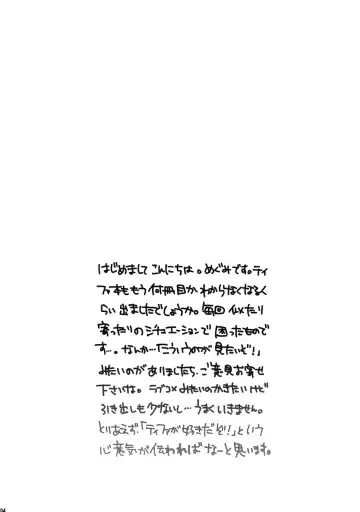 はじめまして こんにちは。めぐみです。ティ
ファ本ももう何冊目かわからなくなるく
らい出ましたでしょうか。毎回似たり
寄ったりのシチュエーションで困ったもので
す…。なんか…「こういうのが見たいぞ!」
みたいのがありましたら、ご意見お寄せ
下さいな。ラブコメみたいのかきたいけど
引き出しも少ないし…うまくいきません。
とりあえず、「ティファが好きだぞ!」という
心意気が伝わればなーと思います。
04